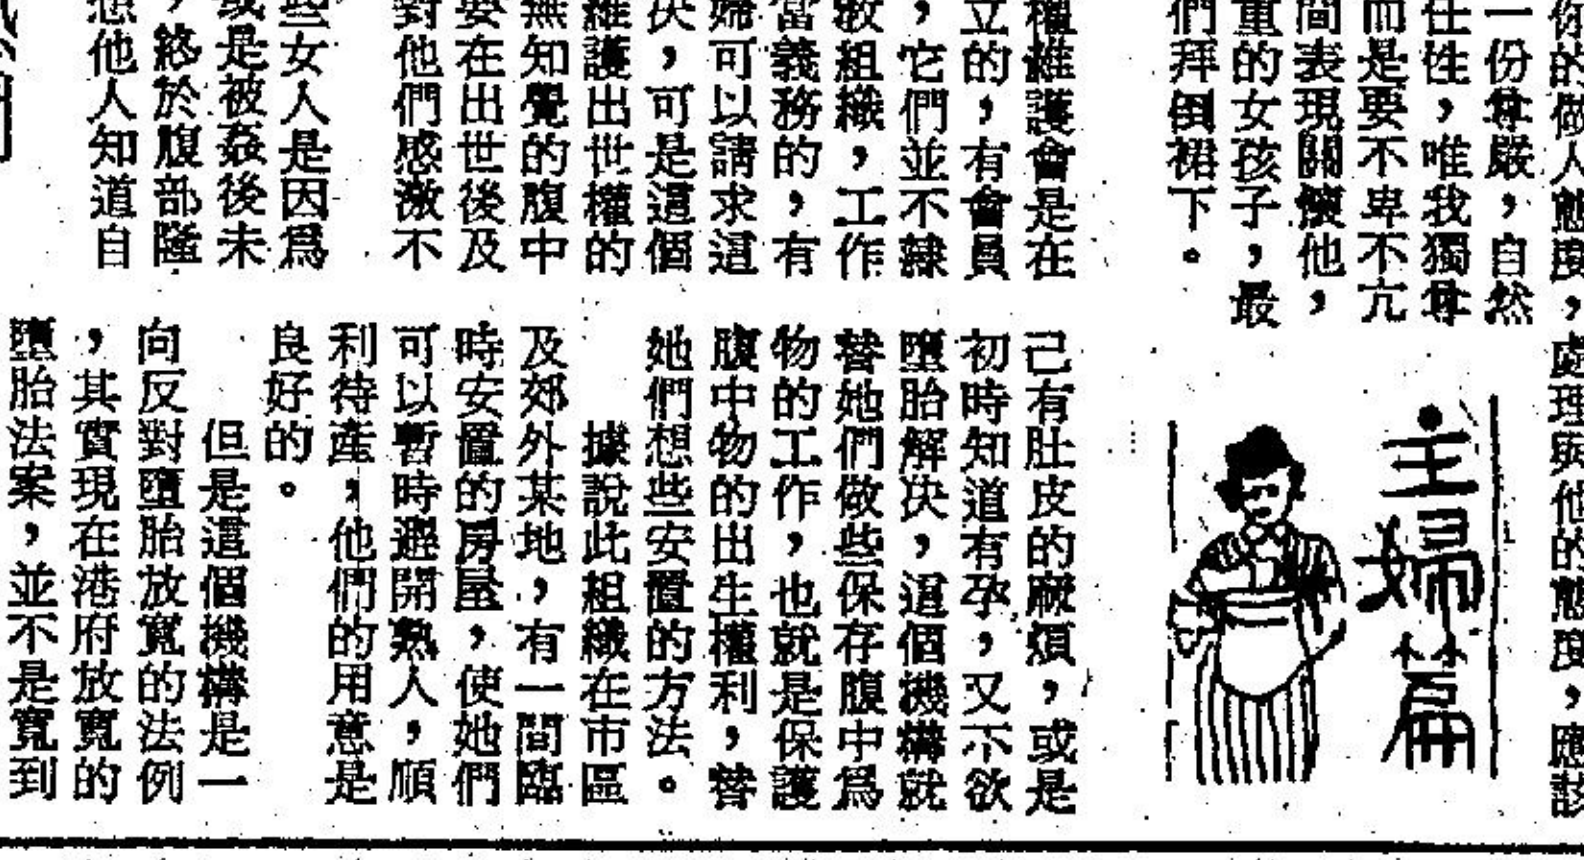 你的做人態度,處理與他的態度,應該
一份尊嚴,自然
任性,唯我獨尊
而是要不卑不亢
間表現關懷他,
重的女孩子,最
們拜倒裙下。
主婦篇
權維護會是在
立的,有會員
,它們並不隸
敎組織,工作
當義務的,有
婦可以請求這
決,可是這個
維護出世權的
無知覺的腹中
要在出世後及
對他們感激不
些女人是因爲
或是被姦後未
,終於腹部隆
想他人知道自
己有肚皮的麻煩,或是
初時知道有孕,又不欲
墮胎解決,這個機構就
替她們做些保存腹中爲
物的工作,也就是保護
腹中物的出生權利,替
她們想些安置的方法。
據說此組織在市區
及郊外某地,有一間臨
時安置的房屋,使她們
可以暫時避開熟人,順
利待產,他們的用意是
良好的。
但是這個機構是一
向反對墮胎放寬的法例
,其實現在港府放寬的
墮胎法案,並不是寬到